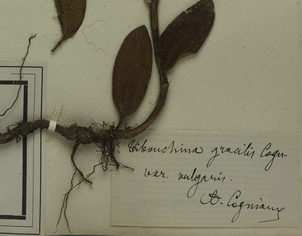 Tibouchina gracilis Cogn.
var. vulgaris.
A. Cogniaux